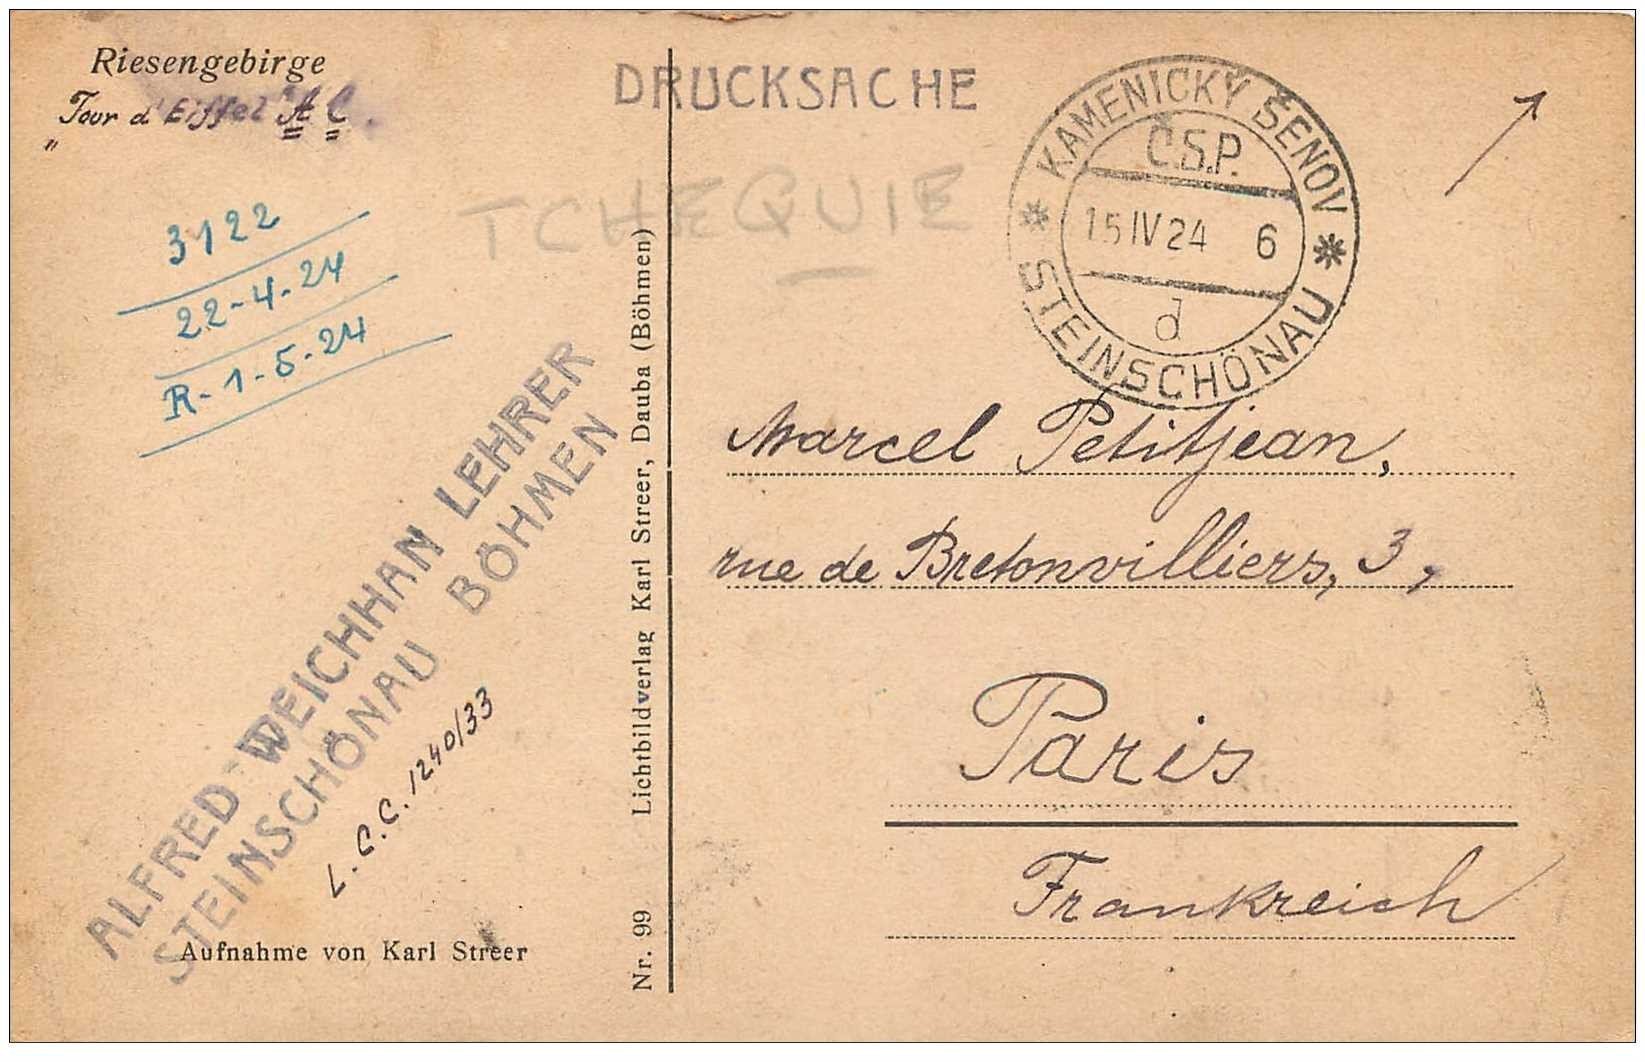 Riesengebirge
„Tour d'Eiffel A C.
3122
22-4-24
R-1-5-24
ALFRED WEICHHAN LEHRER
STEINSCHÖNAU BÖHMEN
L.C.C. 1240/33
Aufnahme von Karl Streer
Nr. 99 Lichtbildverlag Karl Streer, Dauba (Böhmen)
DRUCKSACHE
TCHEQUIE
* KAMENICKÝ ŠENOV *
Č.S.P.
15 IV 24 6
d
STEINSCHÖNAU
Marcel Petitjean,
rue de Bretonvilliers, 3,
Paris
Frankreich